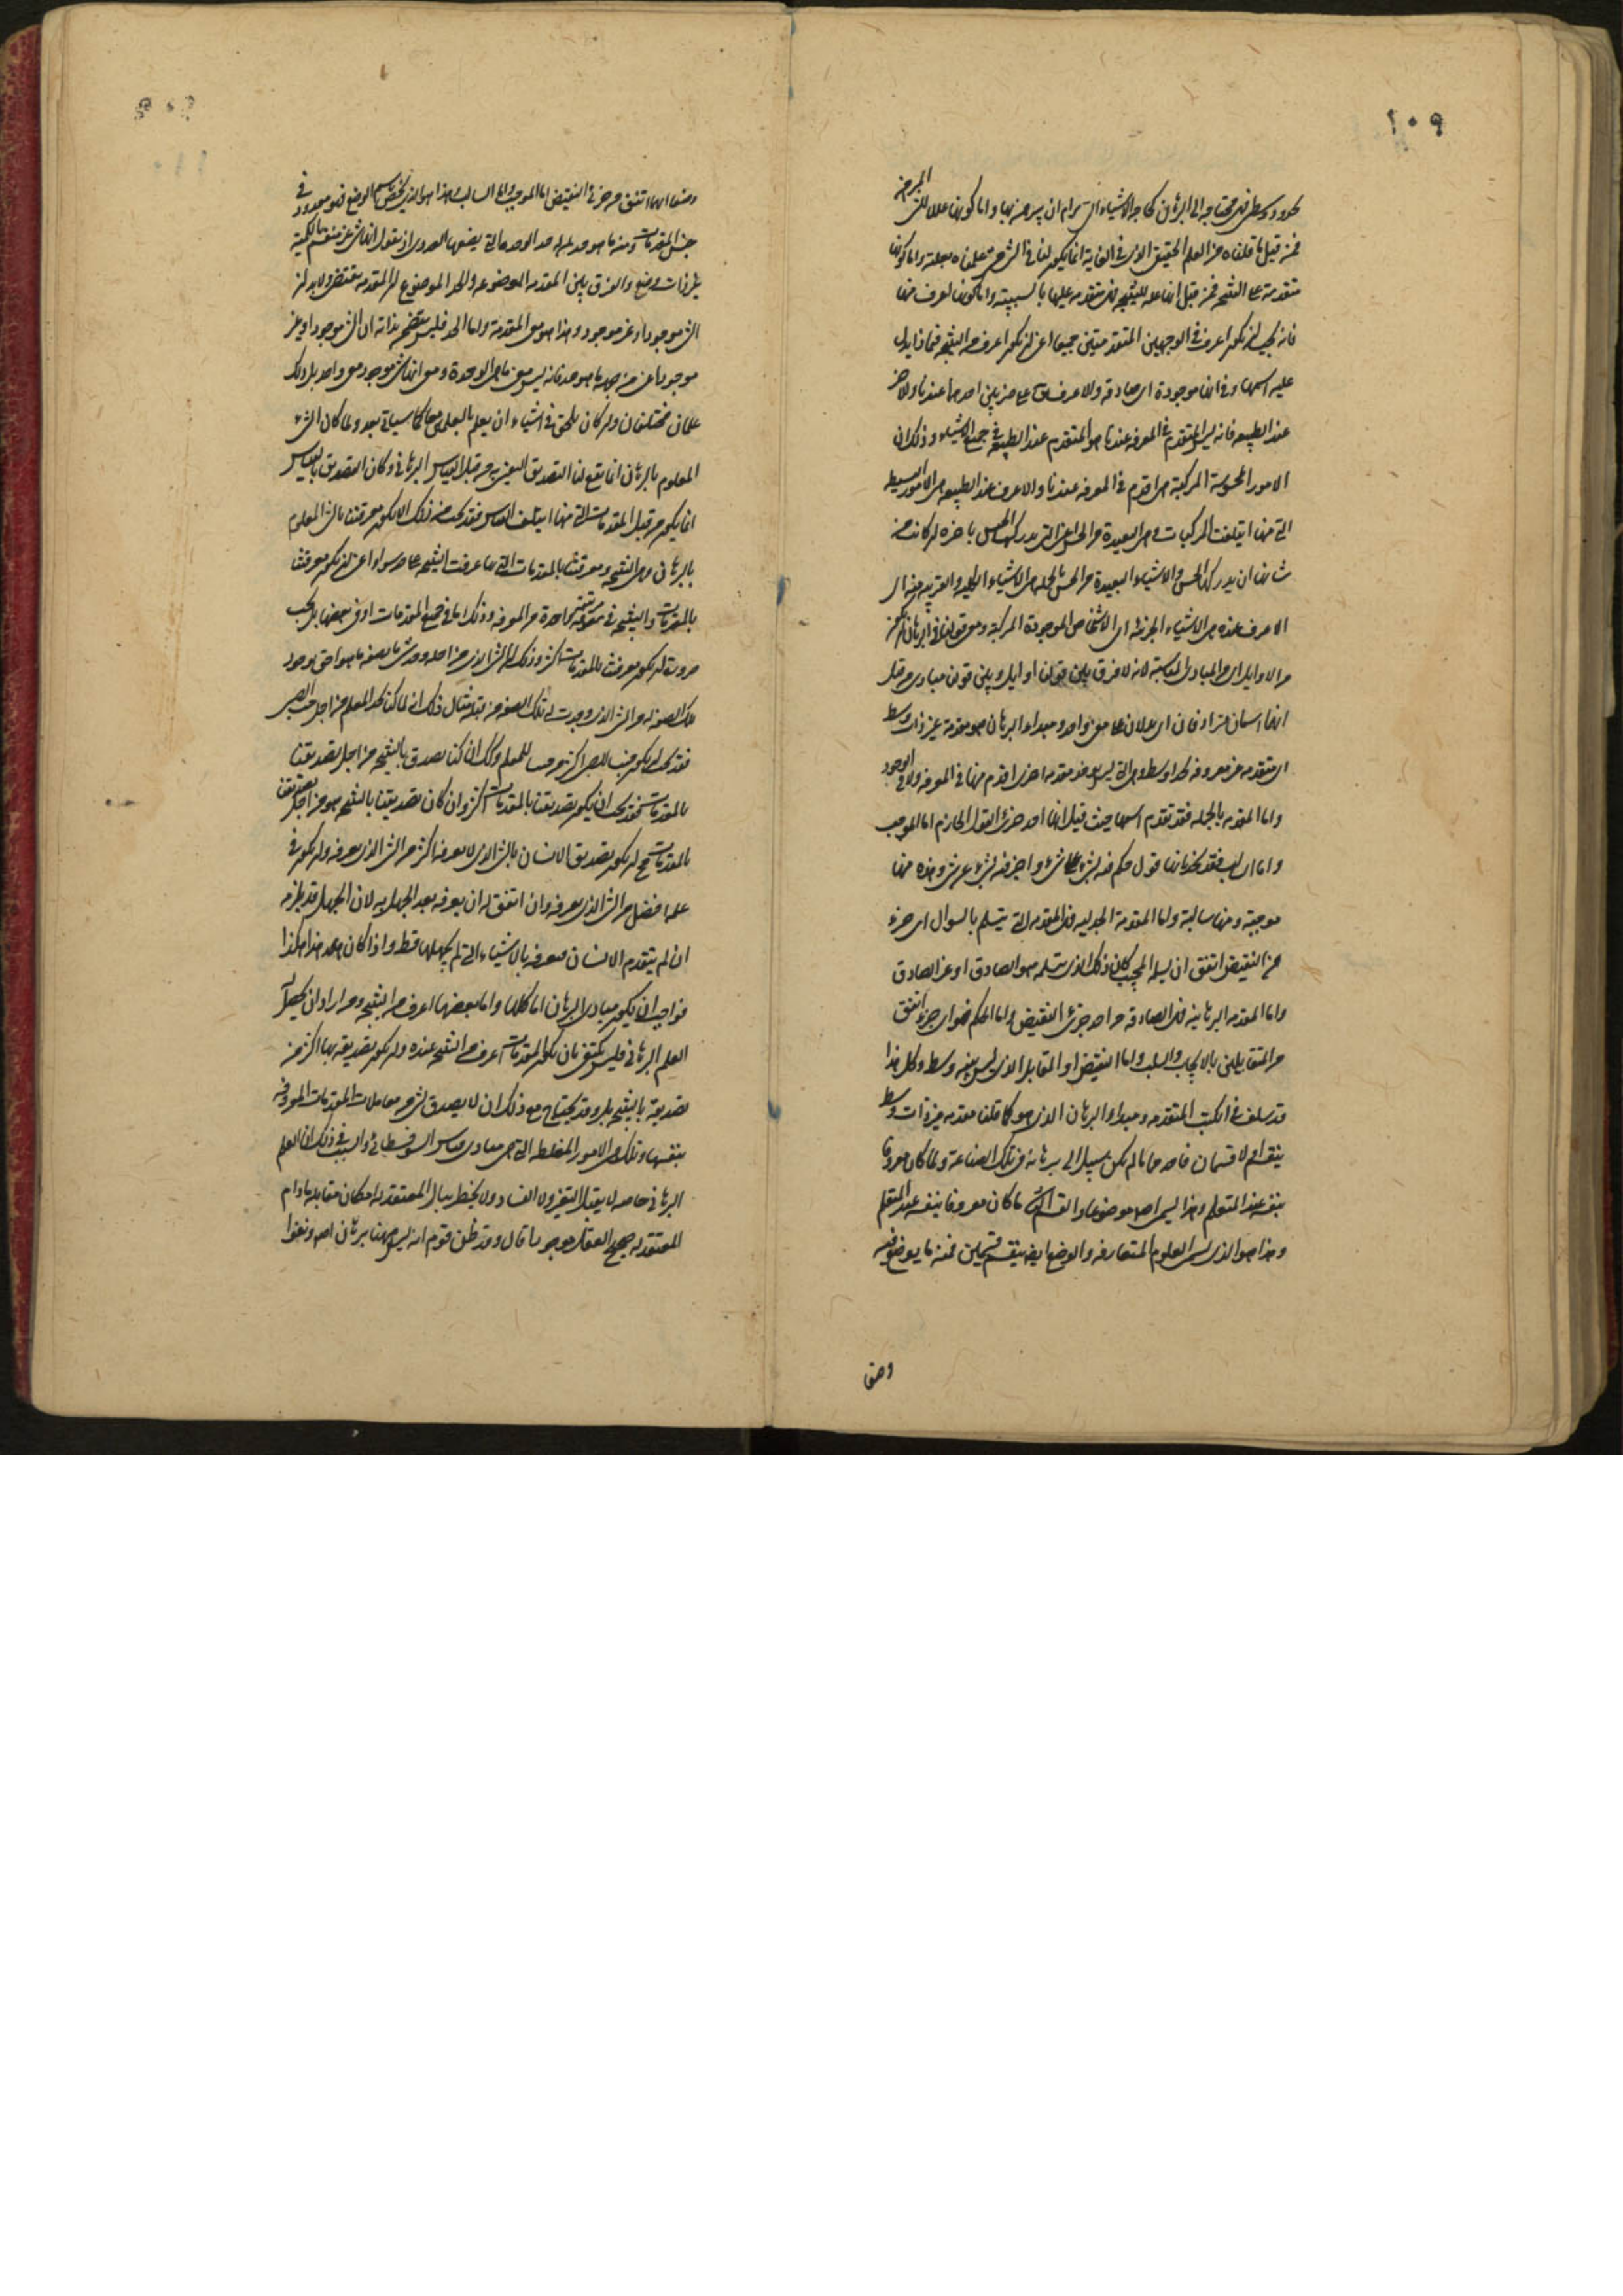 ١٠٩
بحدود وسطى فهي محتاجة الى البرهان كحاجة الاشياء التي يرام ان يبرهن بها واما كونها عللا للشيء المبرهن
فمن قبل ما قلناه من العلم الحقيقي الذي في الغاية انما يكون لنا في الشيء متى علمناه بعلته واما كونها
متقدمة على النتيجة فمن قبل انها علة للنتيجة فهي متقدمة عليها بالسببية واما كونها اعرف منها
فانه يجب ان يكون اعرف في الوجهين المتقدمين جميعا اعني ان يكون اعرف من النتيجة فيما ذا يدل
عليه اسمها وفي انها موجودة اي صادقة والاعرف يقال على ضربين احدهما عندنا والاخر
عند الطبيعة فانه ليس المتقدم في المعرفة عندنا هو المتقدم عند الطبيعة في جميع الاشياء وذلك ان
الامور المحسوسة المركبة هي اقدم في المعرفة عندنا والاعرف عند الطبيعة هي الامور البسيطة
التي منها ايتلفت المركبات وهي البعيدة من الحس اعني التي يدركها الحس باخرة ان كانت من
شانها ان يدركها الحس والاشياء البعيدة من الحس بالجملة هي الاشياء الكلية والقريبة منه اي
الاعرف عنده هي الاشياء الجزئية اي الاشخاص الموجودة المركبة ومعنى قولنا في البرهان انه يكون
من الاوايل اي من المبادي المناسبة لانه لا فرق بين قولنا اوايل وبين قولنا مبادي من قبل
انهما اسمان مترادفان اي يدلان على معنى واحد ومبداء البرهان هو مقدمة غير ذات وسط
اي متقدمة غير معروفة بحد اوسط وهي التي ليس يوجد مقدمة اخرى اقدم منها في المعرفة ولا في الوجود
واما المقدمة بالجملة فقد تقدم رسمها حيث قيل انها احد جزئي القول الجازم اما الموجب
واما السالب فقد تحد بانها قول حكم فيه بشيء على شيء واخبر فيه بشيء عن شيء وهذه منها
موجبة ومنها سالبة واما المقدمة الجدلية فهي المقدمة التي يتسلم بالسوال اي جزء
من النقيض اتفق ان يسلمه المجيب كان ذلك الذي يتسلمه هو الصادق او غير الصادق
واما المقدمة البرهانية فهي الصادقة من احد جزئي النقيض واما الحكم فهو اي جزء اتفق
من المتقابلين بالايجاب والسلب واما النقيض او المتقابل الذي ليس بينه وسط وكل هذا
قد سلف في الكتب المتقدمة ومبداء البرهان الذي هو كما قلنا مقدمة غير ذات وسط
ينقسم اولا قسمان فاحدهما ما لم يكن سبيل الى برهانه في تلك الصناعة ولما كان معروفا
بنفسه عند المتعلم وهذا يسمى اصلا موضوعا والقسم الثاني ما كان معروفا بنفسه عند المتعلم
وهذا هو الذي يسمى العلوم المتعارفة والوضع ايضا ينقسم قسمين فمنه ما يوضع فيه
وضعا ايهما اتفق من جزئي النقيض اما الموجب واما السالب وهذا هو الذي يخص باسم الوضع فهو معدود في
جنس المقدمات ومنه ما هو حد بمنزلة حد الوحدة التي يضعها العددي اذ يقول انها شيء غير منقسم بالكمية
بل ذات وضع والفرق بين المقدمة الموضوعة والحد الموضوع ان المقدمة تقتضي ولا بد ان
الشيء موجود او غير موجود وهذا هو معنى المقدمة واما الحد فليس يتضمن بذاته ان الشيء موجود او غير
موجود اعني من جهة ما هو حد فانه ليس معنى ما هي الوحدة ومعنى انها شيء موجود معنى واحد بل ذلك
علمان مختلفان وان كان يلحق في اشياء ان يعلم بالعلمين معا كما سياتي بعد ولما كان الشيء
المعلوم بالبرهان انما يقع لنا التصديق اليقين به من قبل القياس البرهاني وكان التصديق بالقياس
انما يكون من قبل المقدمات التي منها ايتلف القياس فقد يجب من ذلك الا يكون معرفتنا بالشيء المعلوم
بالبرهان وهي النتيجة ومعرفتنا بالمقدمات التي بها عرفت النتيجة على حد سواء اعني ان يكون معرفتنا
بالمقدمات والنتيجة في مرتبة واحدة من المعرفة وذلك اما في جميع المقدمات او في بعضها بل يجب
ضرورة ان يكون معرفتنا بالمقدمات اكثر وذلك ان الشيء الذي من اجله وجد شيء ما بصفة ما هو احق بوجود
تلك الصفة له من الشيء الذي وجدت له تلك الصفة من قبله مثال ذلك انه لما كنا نحب المعلم من اجل حب الصبي
فقد يجب ان يكون حبنا للصبي اكثر من حبنا للمعلم وكذلك ان كنا نصدق بالنتيجة من اجل تصديقنا
بالمقدمات فقد يجب ان يكون تصديقنا بالمقدمات اكثر وان كان تصديقنا بالنتيجة هو من اجل تصديقنا
بالمقدمات فمحال ان يكون تصديق الانسان بالشيء الذي لا يعرفه اكثر من الشيء الذي يعرفه وان يكون في
علمه افضل من الشيء الذي يعرفه وان اتفق له ان يعرفه بعد الجهل به لان الجهل قد يلزمه
ان لم يتقدم الانسان فمعرفه بالاشياء التي لم يجهلها قط واذا كان هذا هكذا
فواجب ان يكون مبادي البرهان اما كلها واما بعضها اعرف من النتيجة ومن اراد ان يحصل له
العلم البرهاني فليس يكتفي بان يكون المقدمات اعرف من النتيجة عنده وان يكون تصديقه بها اكثر من
تصديقه بالنتيجة بل وقد يحتاج مع ذلك ان لا يصدق بشيء من مقابلات المقدمات المعروفة
بنفسها وتلك هي الامور المغلطة التي هي مبادي قياس السوفسطائي والسبب في ذلك ان العلم
البرهاني خاصه لا يقبل التغير ولا الفساد ولا يخطر ببال المعتقد له امكان مقابله ما دام
المعتقد له صحيح العقل موجودا قال وقد ظن قوم انه ليس ههنا برهان اصلا ونفوا
وضعا